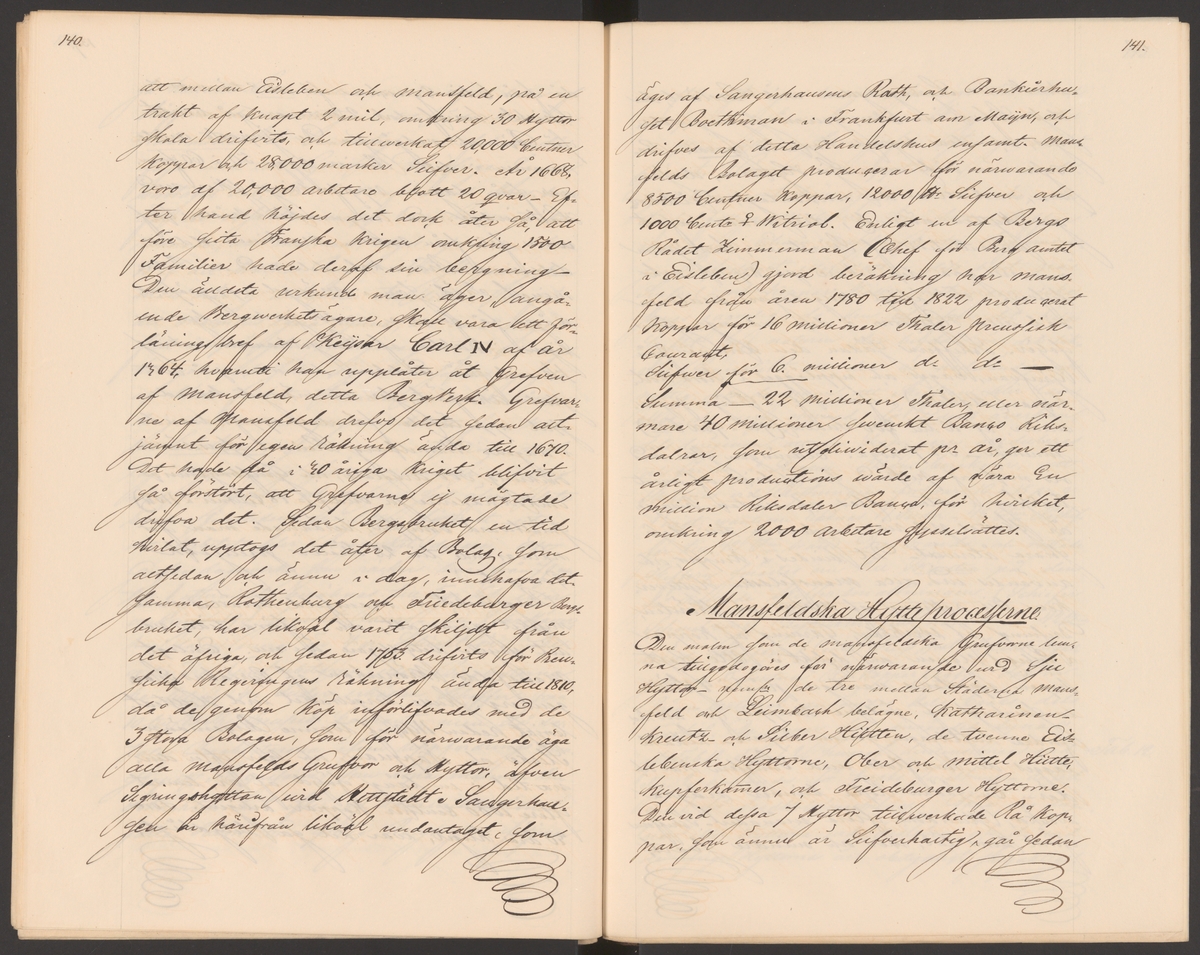 140.
att mellan Eisleben och Mansfeld, på en
trakt af knapt 2 mil, omkring 30 Hyttor
skola drifvits, och tillverkat 20,000 Centner
Koppar och 28,000 marker Silfver. År 1668,
voro af 20,000 arbetare blott 20 qvar – Ef-
ter hand höjdes det dock åter så, att
före sista Franska krigen omkring 1500
Familier hade deraf sin bergning –
Den äldsta urkund man äger, angå-
ende Bergwerkets ägare, skall vara ett för-
länings bref af Keijsar Carl IV af år
1364, hvaruti han upplåter åt Grefven
af Mansfeld, detta Bergverk. Grefvar-
ne af Mansfeld drefvo det sedan alt-
jämt för egen räkning ända till 1670.
Det hade då i 30 åriga kriget blifvit
så förstört, att Grefvarne ej mägtade
drifva det. Sedan Bergsbruket en tid
hvilat, upptogs det åter af Bolag, som
altsedan och ännu i dag, innehafva det-
samma, Rothenburg och Friedeburger Bergs-
bruket, har likväl varit skiljdt från
det öfriga, och sedan 1763 drifvits för Preu-
siska Regeringens räkning ända till 1810,
då de genom köp införlifvades med de
3 stora Bolagen, som för närwarande äga
alla Mansfelds Grufvor och Hyttor, äfven
Sigringshyttan vid Hettstädt. Sangerhau-
sen är härifrån likväl undantaget, som
141.
äges af Sangerhausens Rath, och Bankierhu-
set Boethman i Frankfurt am Mayn, och
drifves af detta Handelshus ensamt. Mans-
felds Bolaget producerar för närwarande
8500 Centner Koppar, 12000 Silfver och
1000 Cent. Witriol. Enligt en af Bergs
Rådet Zimmerman (Chef för Bergamtet
i Eisleben) gjord beräkning har Mans-
feld från åren 1780 till 1822 producerat
Koppar för 16 millioner Thaler preussisk
Courant,
Silfwer för 6. millioner d:o d:o —
Summa — 22 millioner Thaler, eller när-
mare 40 millioner swenskt Banco Riks-
dalrar, som utdividerat pr år, ger ett
årligt productions wärde af nära En
million Riksdaler Banco, för hvilket,
omkring 2000 arbetare sysselsättes.
Mansfeldska Hytteprocesserne
Den malm som de mansfeldska Grufvorne lem-
na tillgodogöres för närwarande vid sju
Hyttor – nemt. de tre mellan Städerna Mans-
feld och Leimbach belägne, Katharinen-
Kreutz- och Silber Hütten, de tvenne Eis-
lebenska Hyttorne, Ober och Mittel Hütte,
Kupferkamer, och Friedeburger Hyttorne.
Den vid dessa 7 Hyttor tillverkade Rå Kop-
par, som ännu är Silfverhaltig, går sedan